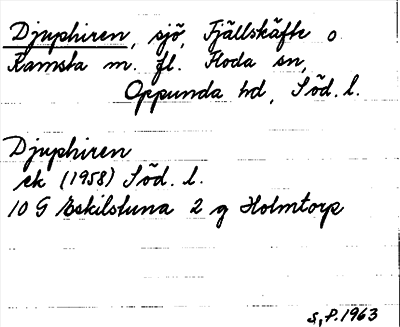 Djuphiren, sjö, Fjällskäfte o
Ramsta m. fl. Floda sn,
Oppunda hd, Söd. l.
Djuphiren
ek (1958) Söd. l.
10 G Eskilstuna 2 g Holmtorp
S.P. 1963